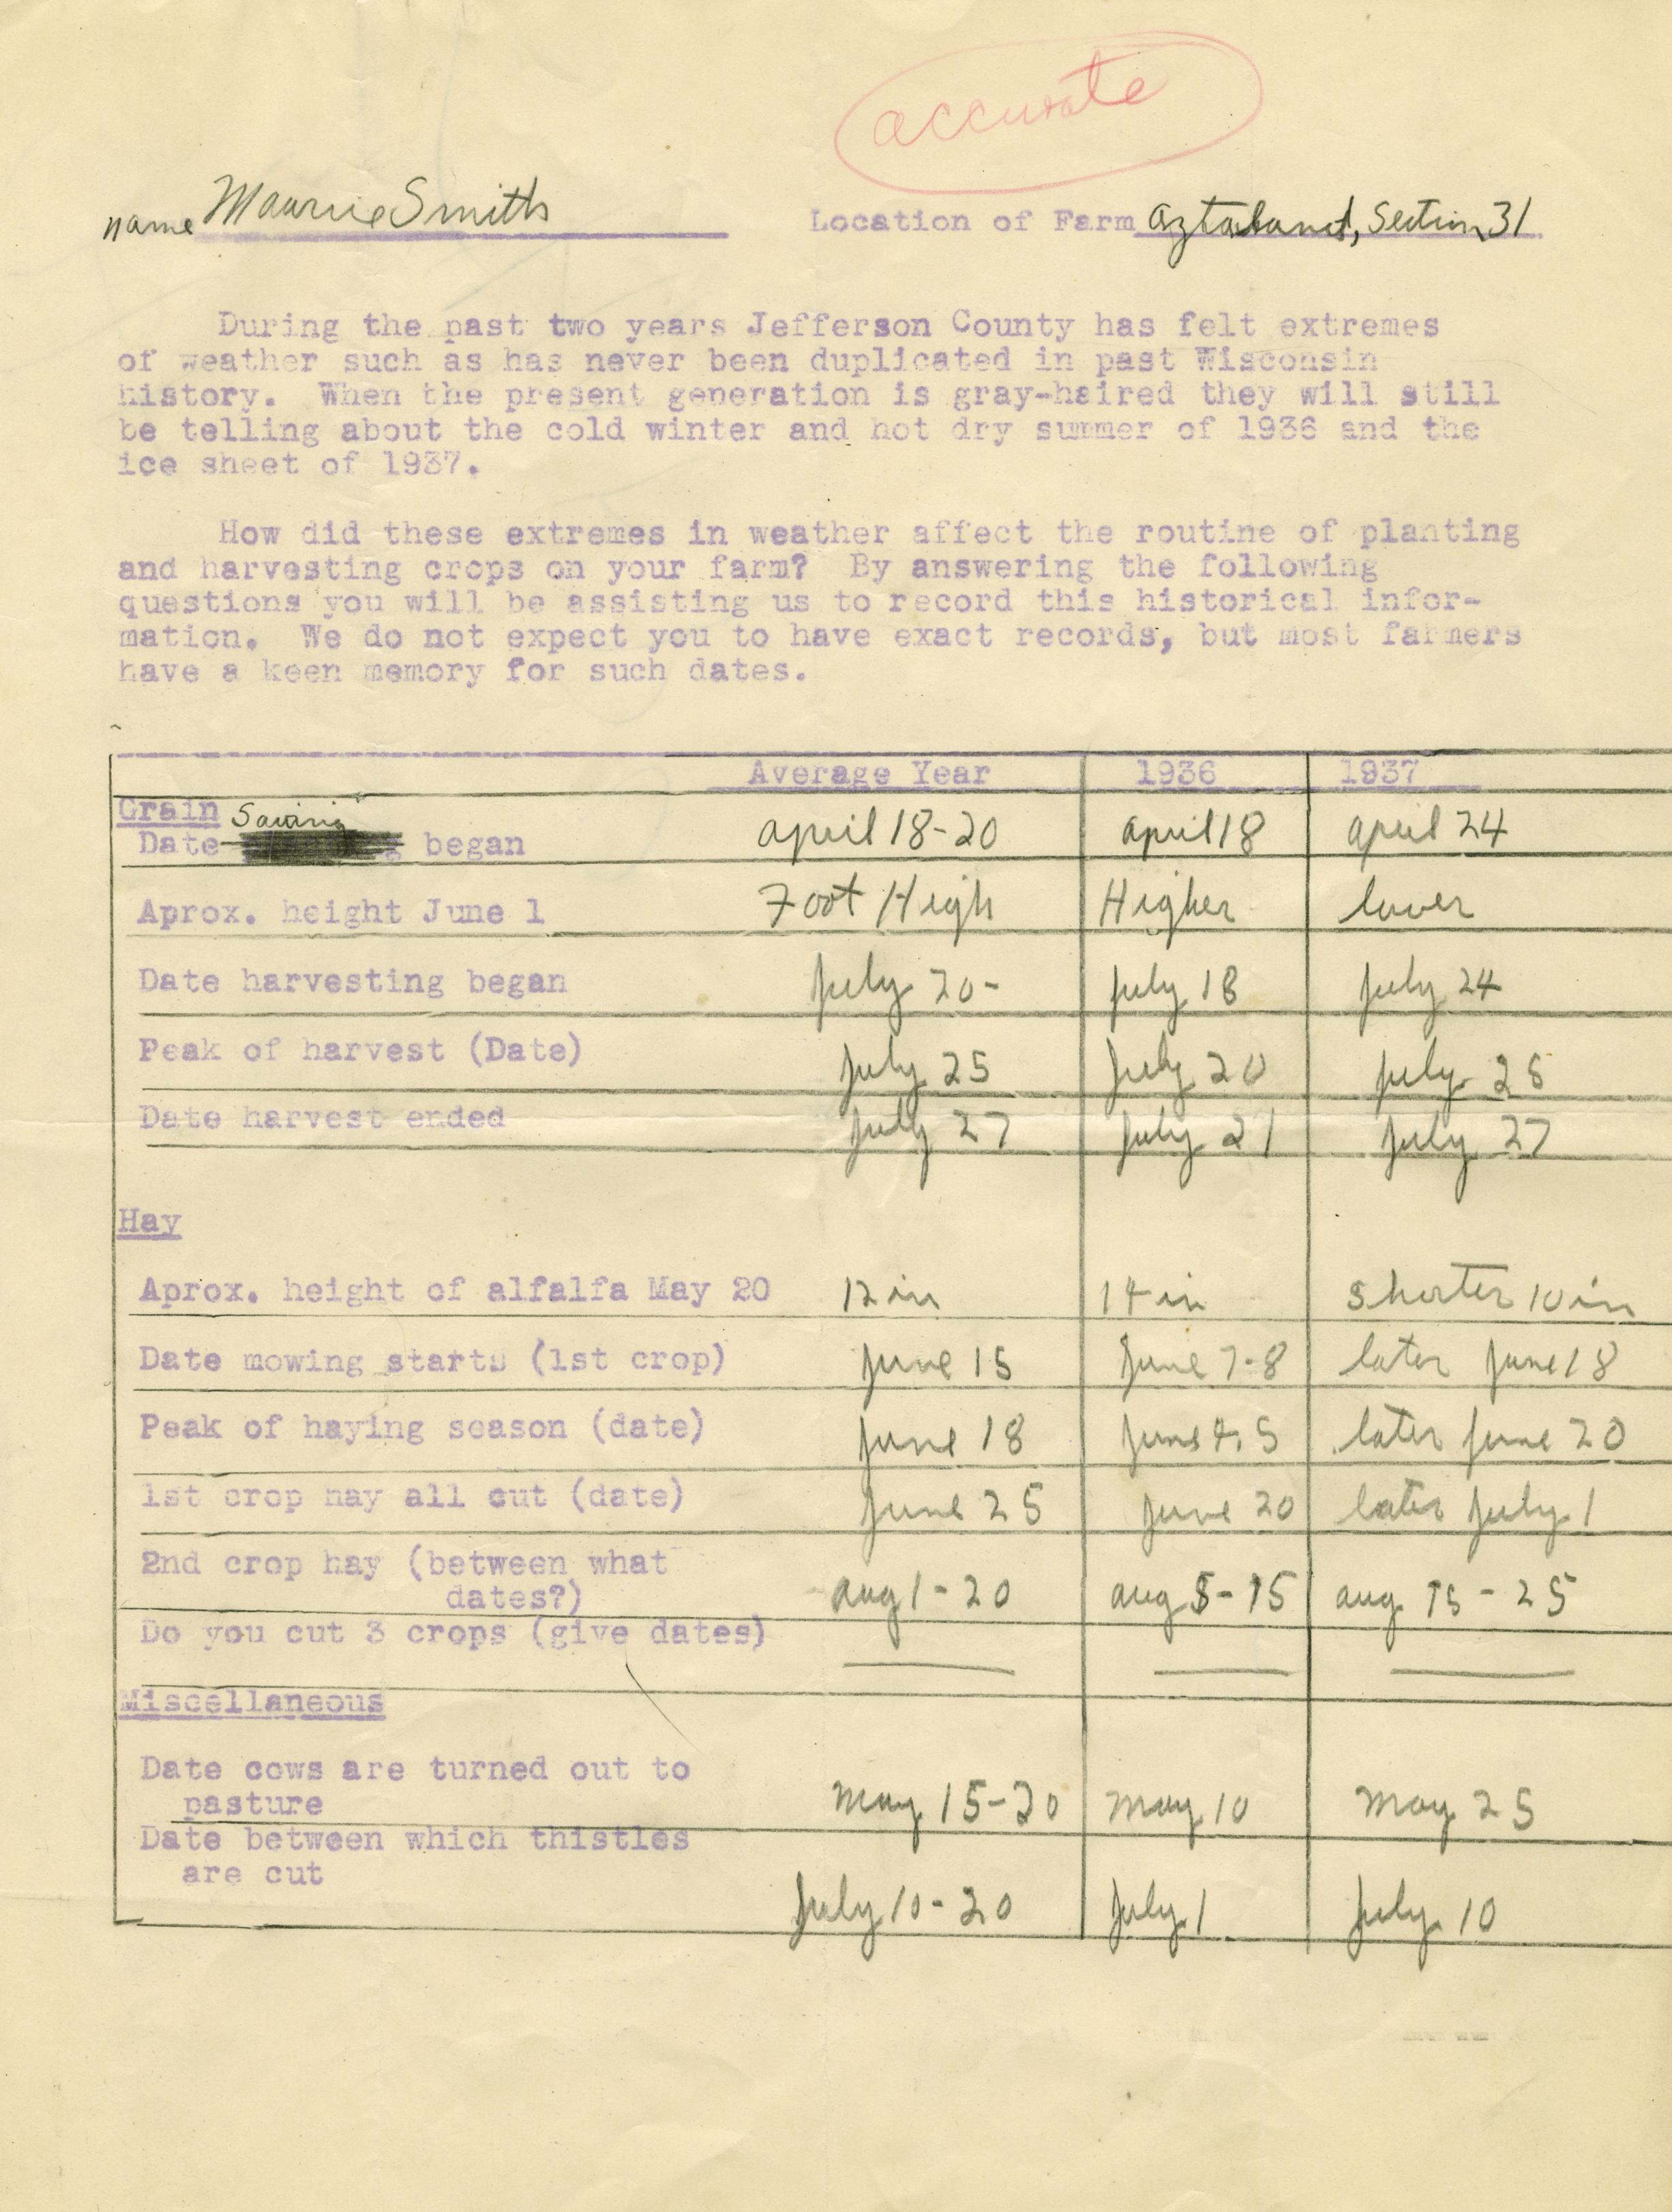 accurate
name Maurice Smith Location of Farm Aztaland, Section 31
During the past two years Jefferson County has felt extremes
of weather such as has never been duplicated in past Wisconsin
history. When the present generation is gray-haired they will still
be telling about the cold winter and hot dry summer of 1936 and the
ice sheet of 1937.
How did these extremes in weather affect the routine of planting
and harvesting crops on your farm? By answering the following
questions you will be assisting us to record this historical infor-
mation. We do not expect you to have exact records, but most farmers
have a keen memory for such dates.
Average Year 1936 1937
Grain
Date Sowing began april 18-20 april 18 april 24
Aprox. height June 1 Foot High Higher lower
Date harvesting began july 20- july 18 july 24
Peak of harvest (Date) july 25 july 20 july 25
Date harvest ended july 27 july 21 july 27
Hay
Aprox. height of alfalfa May 20 12 in 14 in shorter 10 in
Date mowing starts (1st crop) june 15 june 7-8 later june 18
Peak of haying season (date) june 18 june later june 20
1st crop hay all cut (date) june 25 june 20 later july 1
2nd crop hay (between what
dates?) aug 1-20 aug 5-15 aug 15-25
Do you cut 3 crops (give dates)
Miscellaneous
Date cows are turned out to
pasture may 15-20 may 10 may 25
Date between which thistles
are cut july 10-20 july 1 july 10